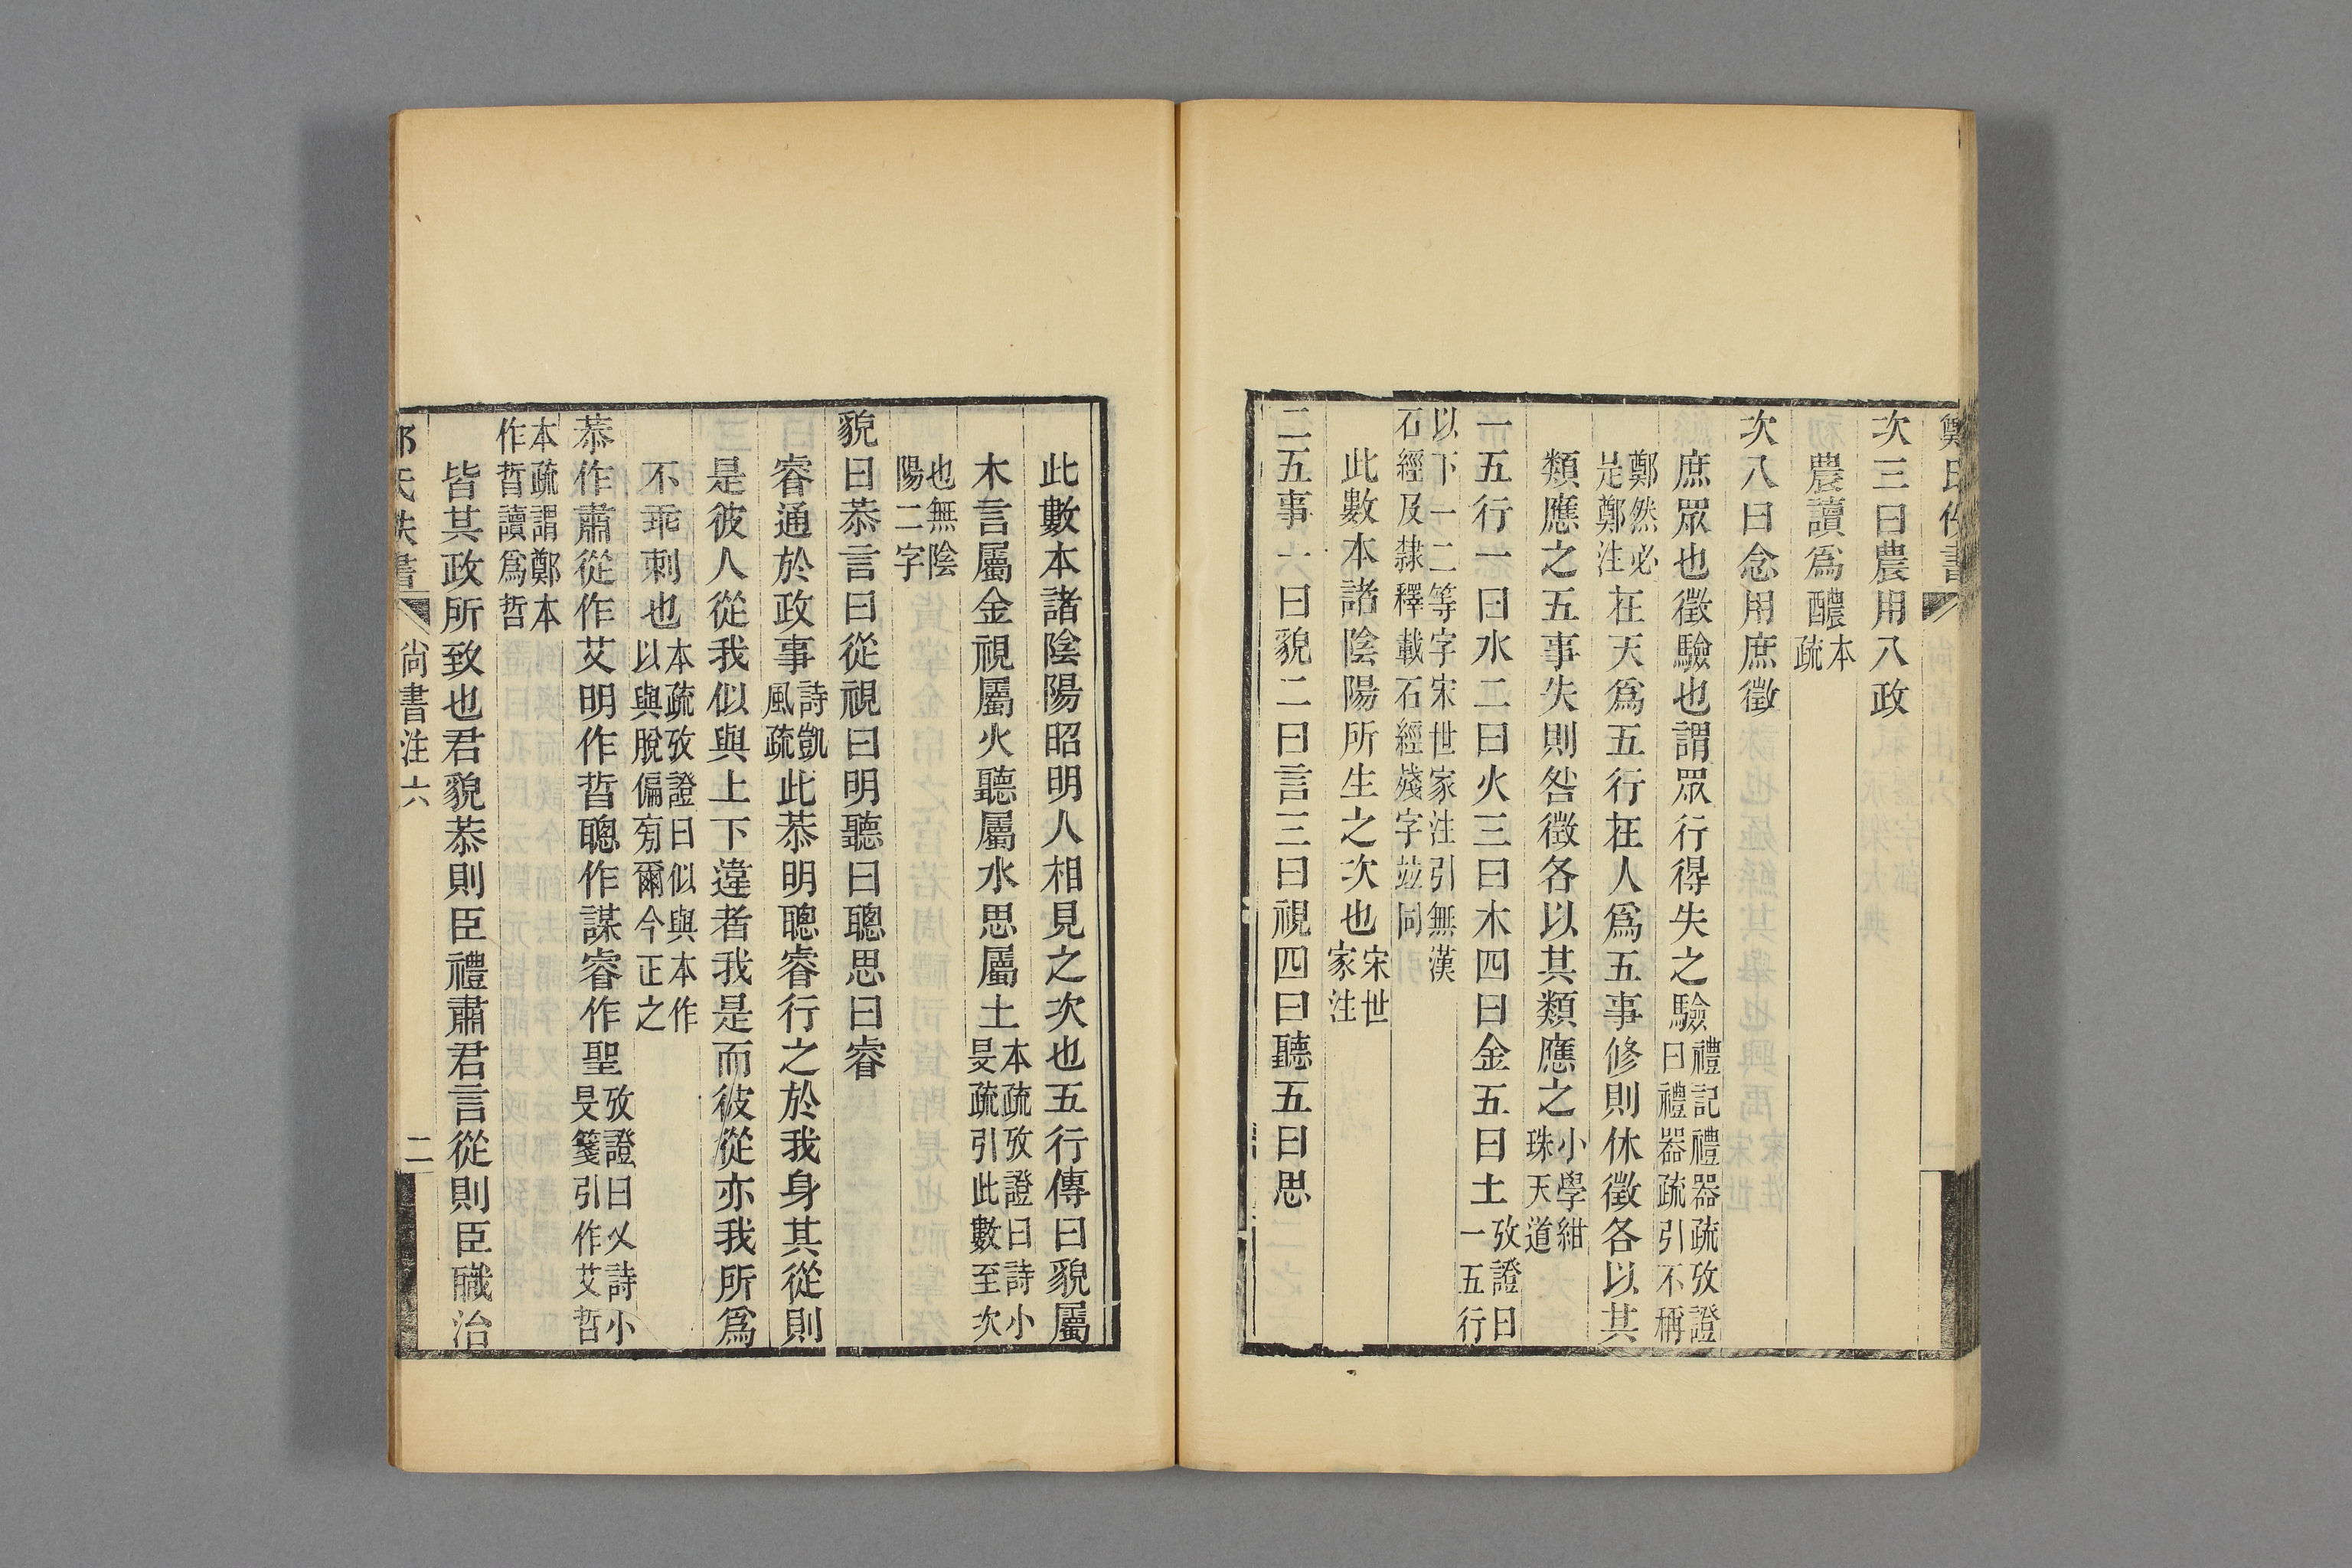 次三曰農用八政
農讀爲醲本
疏
次八曰念用庶徵
庶眾也徵驗也謂眾行得失之驗禮記禮器疏攷證
曰禮器疏引不稱
鄭然必
是鄭注在天爲五行在人爲五事修則休徵各以其
類應之五事失則咎徵各以其類應之小學紺
珠天道
一五行一曰水二曰火三曰木四曰金五曰土攷證曰
一五行
以下一二等字宋世家注引無漢
石經及隸釋載石經殘字竝同
此數本諸陰陽所生之次也宋世
家注
二五事一曰貌二曰言三曰視四曰聽五曰思
此數本諸陰陽昭明人相見之次也五行傳曰貌屬
木言屬金視屬火聽屬水思屬土本疏攷證曰詩小
旻疏引此數至次
也無陰
陽二字
貌曰恭言曰從視曰明聽曰聰思曰睿
睿通於政事詩凱
風疏此恭明聰睿行之於我身其從則
是彼人從我似與上下違者我是而彼從亦我所爲
不乖剌也本疏攷證曰似與本作
以與脫偏旁爾今正之
恭作肅從作乂明作晢聰作謀睿作聖攷證曰乂詩小
旻箋引作艾晢
本疏謂鄭本
作晢讀爲哲
皆其政所致也君貌恭則臣禮肅君言從則臣職治
尙書注六
二